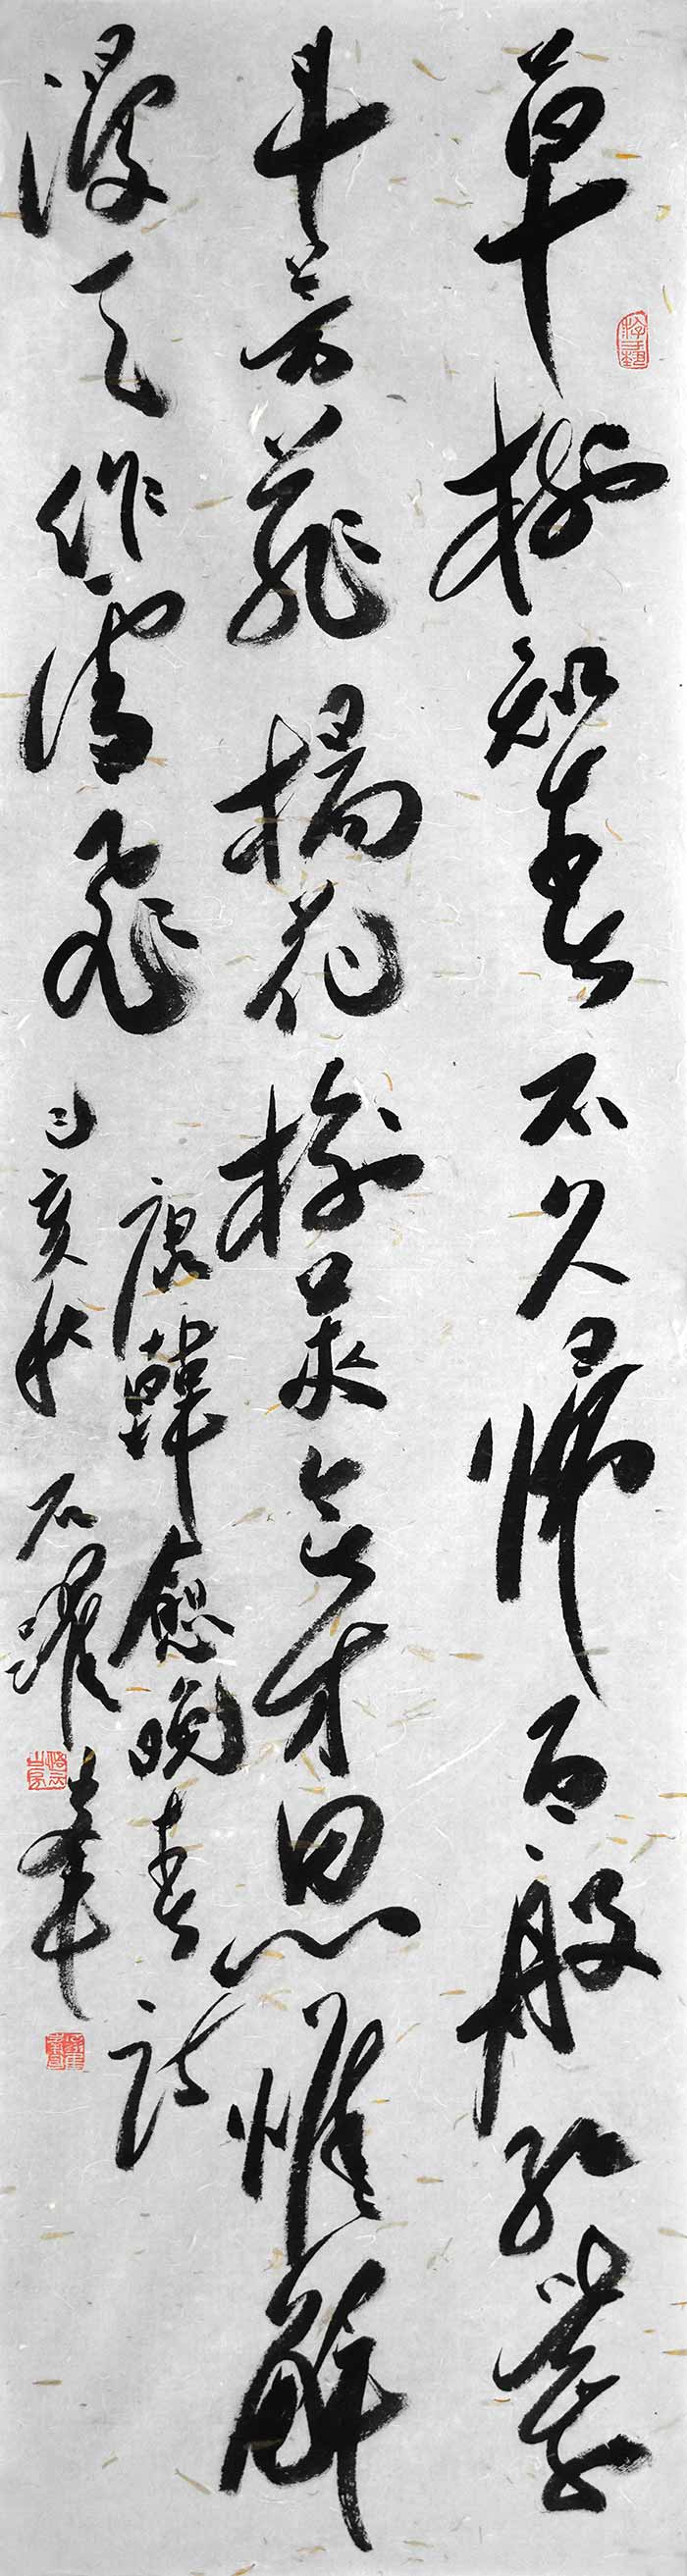 草樹知春不久歸百般紅紫
斗芳菲楊花榆莢無才思惟解
漫天作雪飛
唐韓愈晚春詩
己亥秋 石躍峯